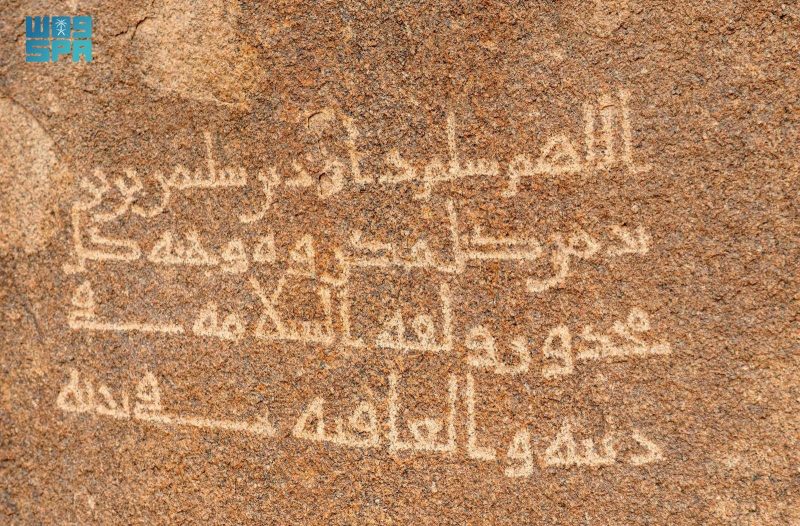 واس
SPA
اللهم سلم داود بن سليمن بن يز
يد من كل مكروه وجنبه كل
محذور ولقه السلامه في
دينه والعافيه في بدنه